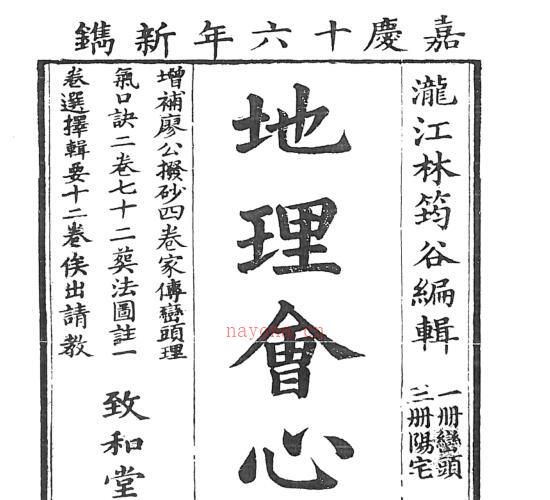 嘉慶十六年新鐫
瀧江林筠谷編輯
一册巒頭
三册陽宅
地理會心
增補廖公撥砂四卷家傳巒頭理
氣口訣二卷七十二葬法圖註一
卷選擇輯要十二卷俟出請教
致和堂
nayona.cn